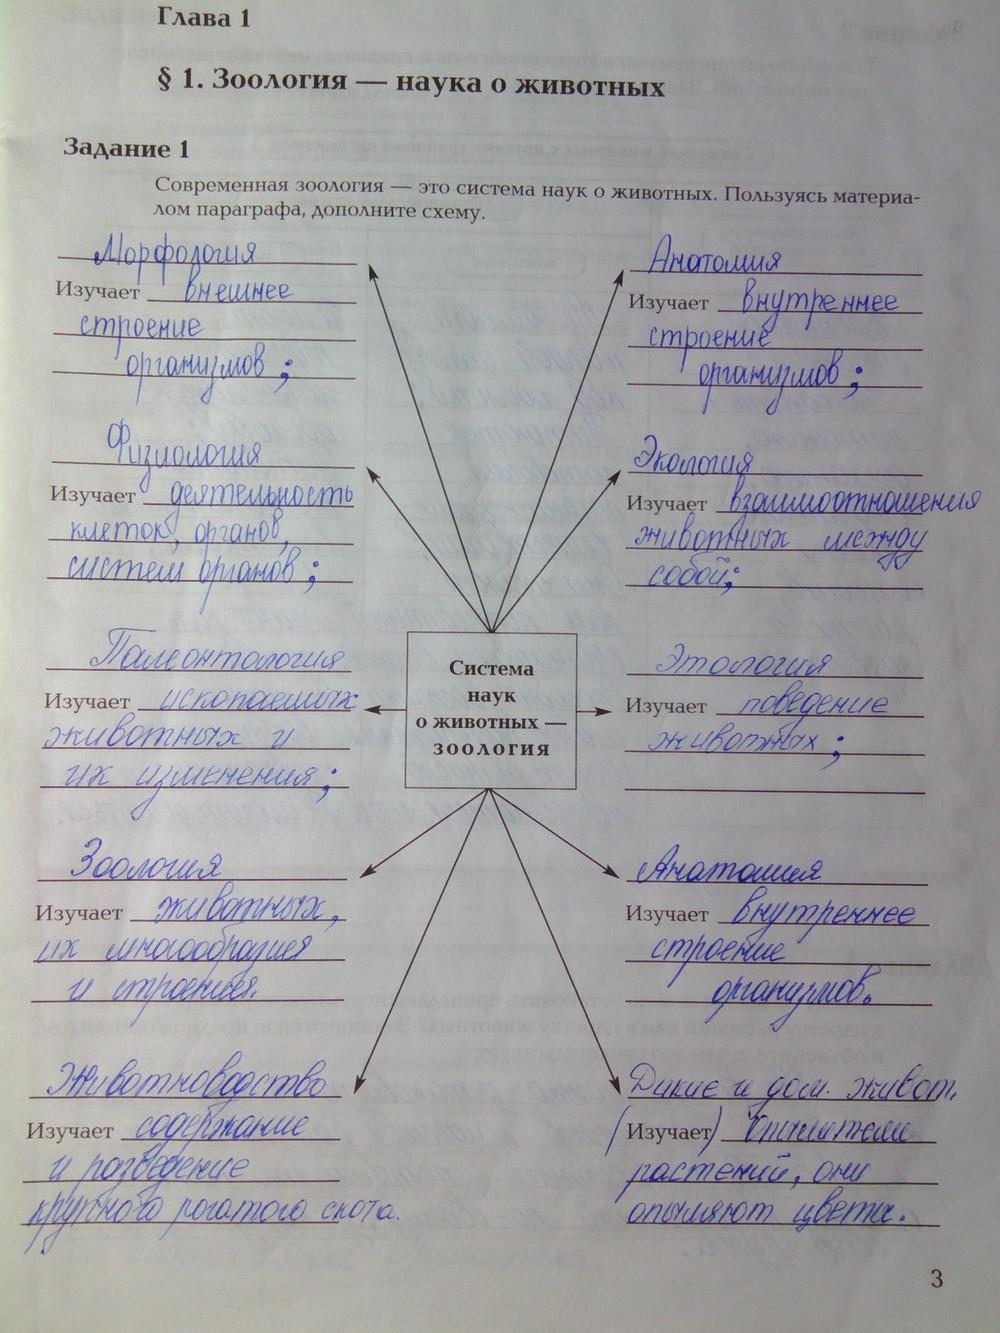 Глава 1
§ 1. Зоология — наука о животных
Задание 1
Современная зоология — это система наук о животных. Пользуясь материа-
лом параграфа, дополните схему.
Морфология
Изучает внешнее
строение
организмов;
Анатомия
Изучает внутреннее
строение
организмов;
Физиология
Изучает деятельность
клеток, органов,
систем органов;
Экология
Изучает взаимоотношения
животных между
собой;
Палеонтология
Изучает ископаемых
животных и
их изменения;
Система
наук
о животных —
зоология
Этология
Изучает поведение
животных;
Зоология
Изучает животных,
их многообразия
и строения.
Анатомия
Изучает внутреннее
строение
организмов.
Животноводство
Изучает содержание
и разведение
крупного рогатого скота.
Дикие и дом. живот.
(Изучает)
растений, они
опыляют цветы.
3